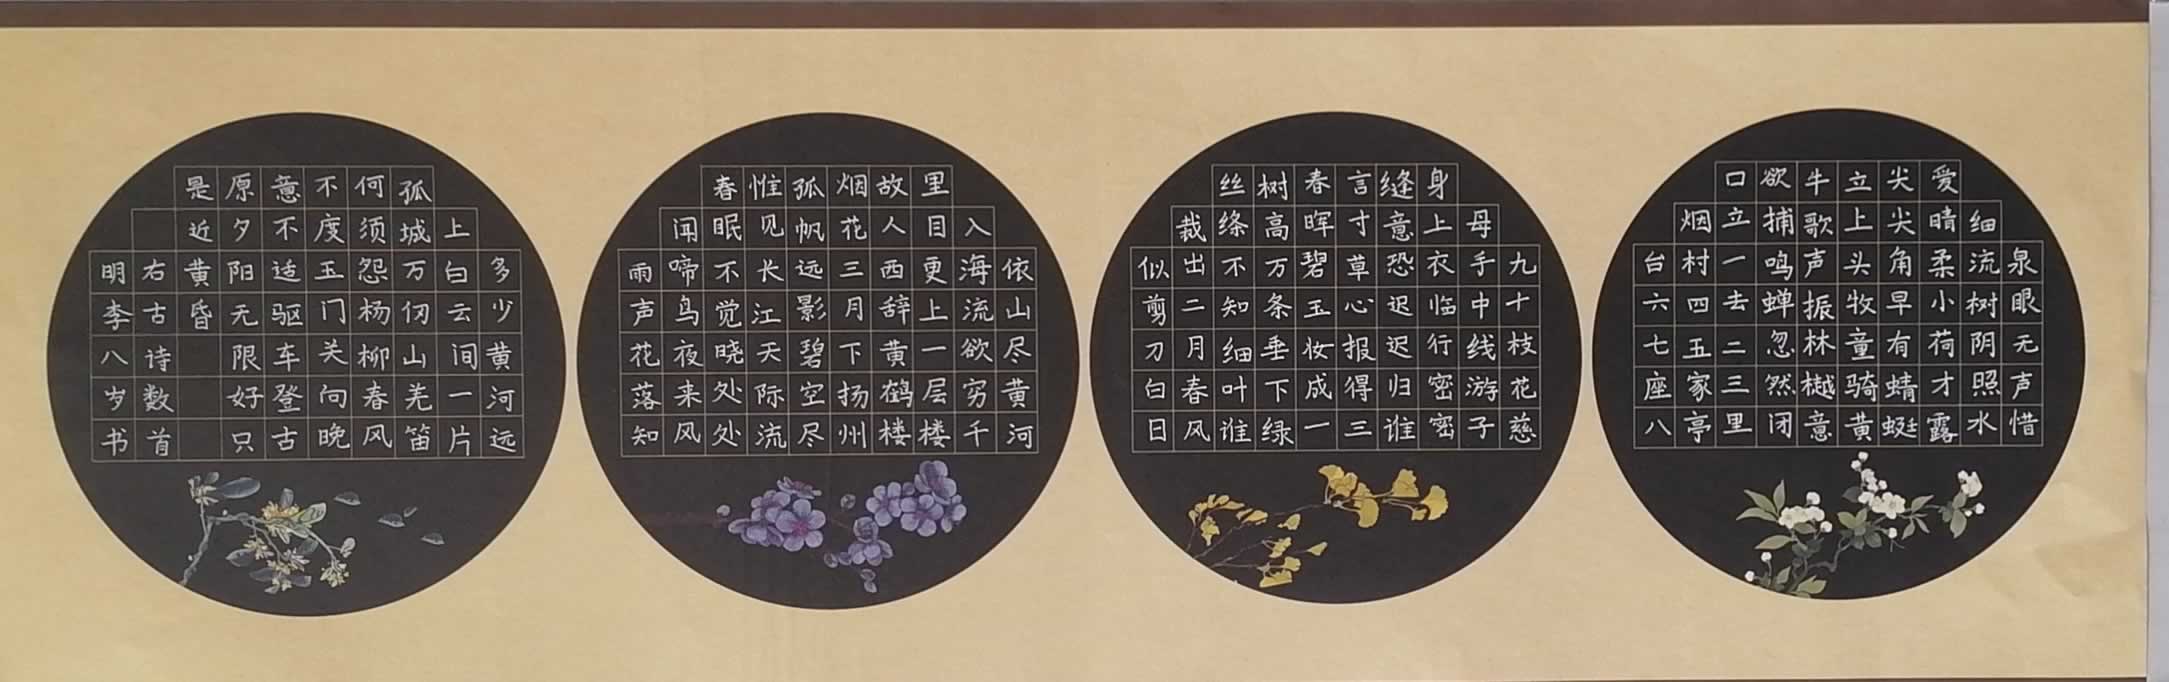 泉眼无声惜
细流树阴照水
爱晴柔小荷才露
尖尖角早有蜻蜓
立上头牧童骑黄
牛歌声振林樾意
欲捕鸣蝉忽然闭
口立一去二三里
烟村四五家亭
台六七座八
九十枝花慈
母手中线游子
身上衣临行密密
缝意恐迟迟归谁
言寸草心报得三
春晖碧玉妆成一
树高万条垂下绿
丝绦不知细叶谁
裁出二月春风
似剪刀白日
依山尽黄河
入海流欲穷千
里目更上一层楼
故人西辞黄鹤楼
烟花三月下扬州
孤帆远影碧空尽
惟见长江天际流
春眠不觉晓处处
闻啼鸟夜来风
雨声花落知
多少黄河远
上白云间一片
孤城万仞山羌笛
何须怨杨柳春风
不度玉门关向晚
意不适驱车登古
原夕阳无限好只
是近黄昏
右古诗数首
明李八岁书